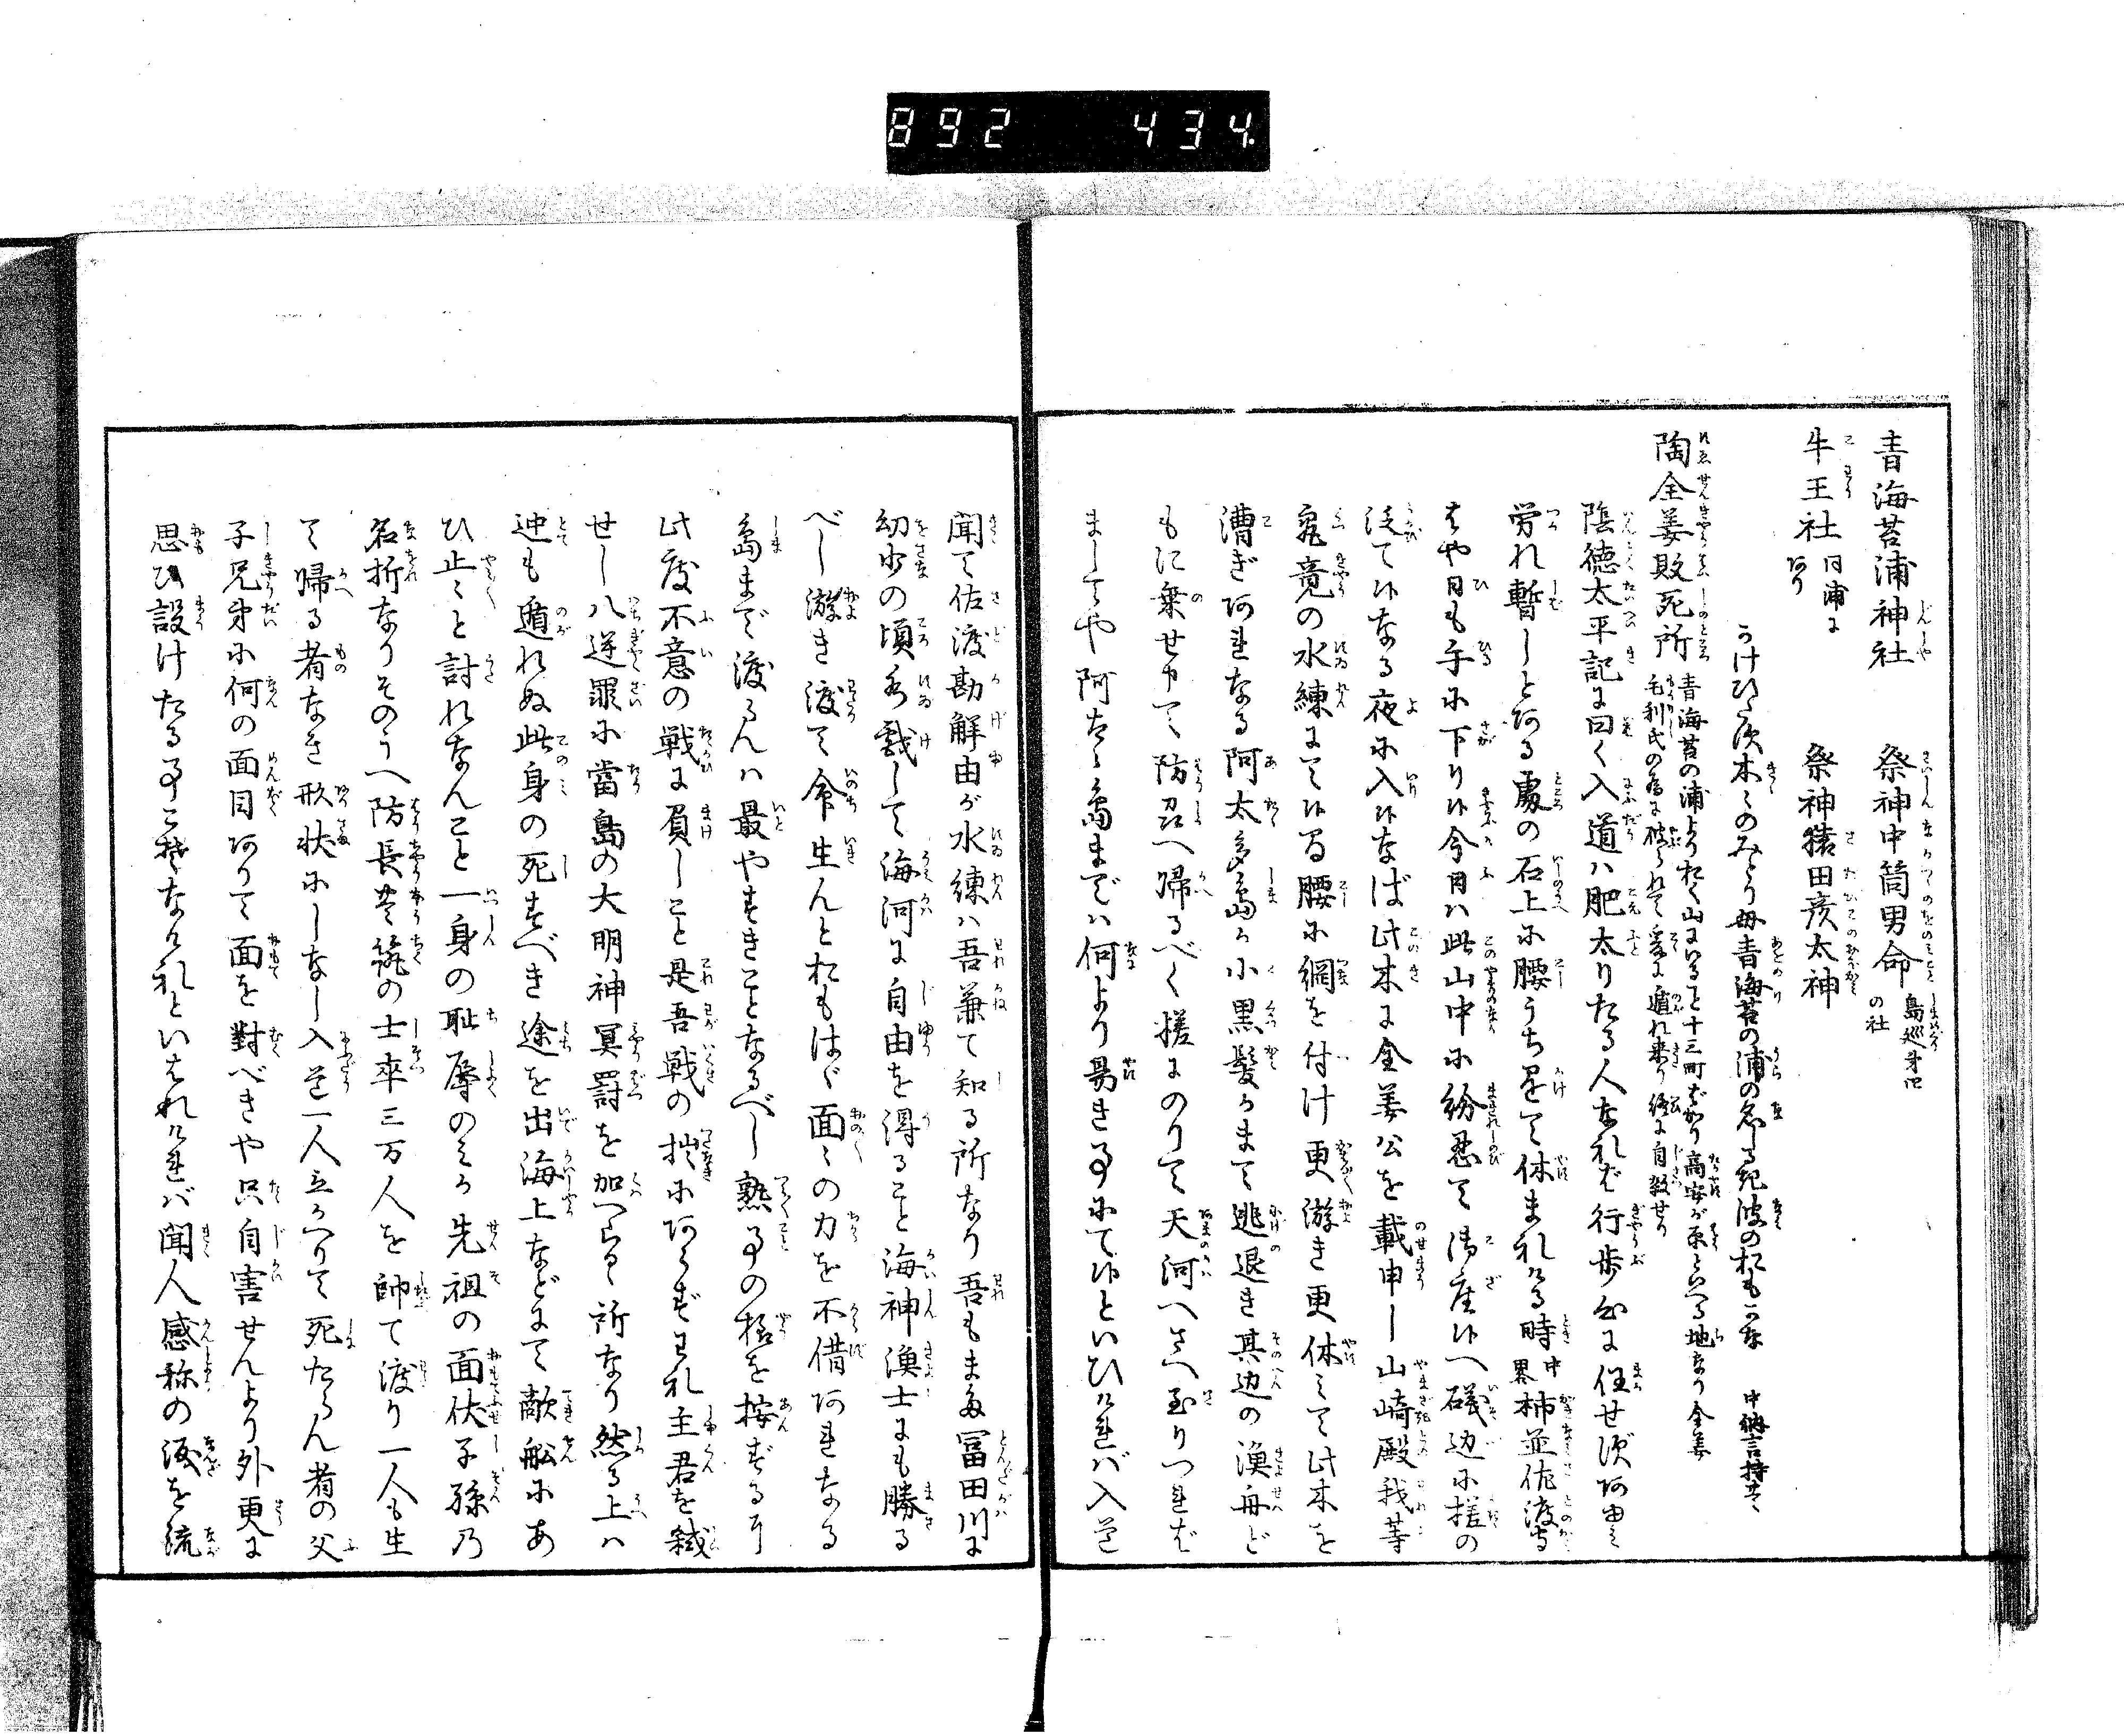 892 434.
青海苔浦神社 祭神中筒男命 島巡第四の社
牛王社 同浦にあり 祭神猿田彦太神
うけひく茨木々のみどり毎青海苔の浦の名に
陶全姜敗死所 青海苔の浦よりおく山に
毛利氏の為に破られて爰に遁れ来り終に自殺せり
陰徳太平記に曰く入道ハ肥太りたる人なれば行歩心に任せず
労れ暫しとある處の石上に腰うちかけて休まれける時 中畧 柿並佐渡守
はや日も午に下り候今日ハ此山中に紛忍て御座候へ磯辺に槎の
泛て候なる夜に入候なば此木に全姜公を載申し山崎殿我等
究竟の水練にて候る腰に綱を付け更游き更休みて此木を
漕ぎあれなる阿太多島か小黒髪かまて逃退き其辺の漁舟ど
もに乗せ申て防召へ帰るべく槎にのりて天河へさへ至りつれば
ましてや阿たゝ島までハ何より易き事にて候といひければ入道
聞て佐渡勘解由が水練ハ吾兼て知る所なり吾もまた冨田川に
幼少の頃水戯して海河に自由を得ること海神漁士にも勝る
べし游き渡て命生んとおもはゞ面々の力を不借あれなる
島まで渡らんハ最やすきことなるべし熟事の様を按ずるに
此度不意の戦に負しこと是吾戦の拙にあらずわれ主君を弑
せし八逆罪に當島の大明神冥罰を加へらるゝ所なり然る上ハ
迚も遁れぬ此身の死すべき途を出海上などにて敵舩にあ
ひ止々と討れなんこと一身の耻辱のみか先祖の面伏子孫乃
名折なりそのうへ防長豊筑の士卒三万人を帥て渡り一人も生
て帰る者なき形状にしなし入道一人立かへりて死たらん者の父
子兄弟に何の面目ありて面を對べきや只自害せんより外更に
思ひ設けたる事こそなけれといはれければ聞人感称の涙を流